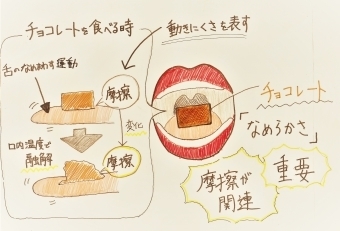 チョコレートを食べる時
動きにくさを表す
舌のなめまわす運動
摩擦
変化
口内温度で
融解
摩擦
チョコレート
「なめらかさ」
摩擦が
関連
重要